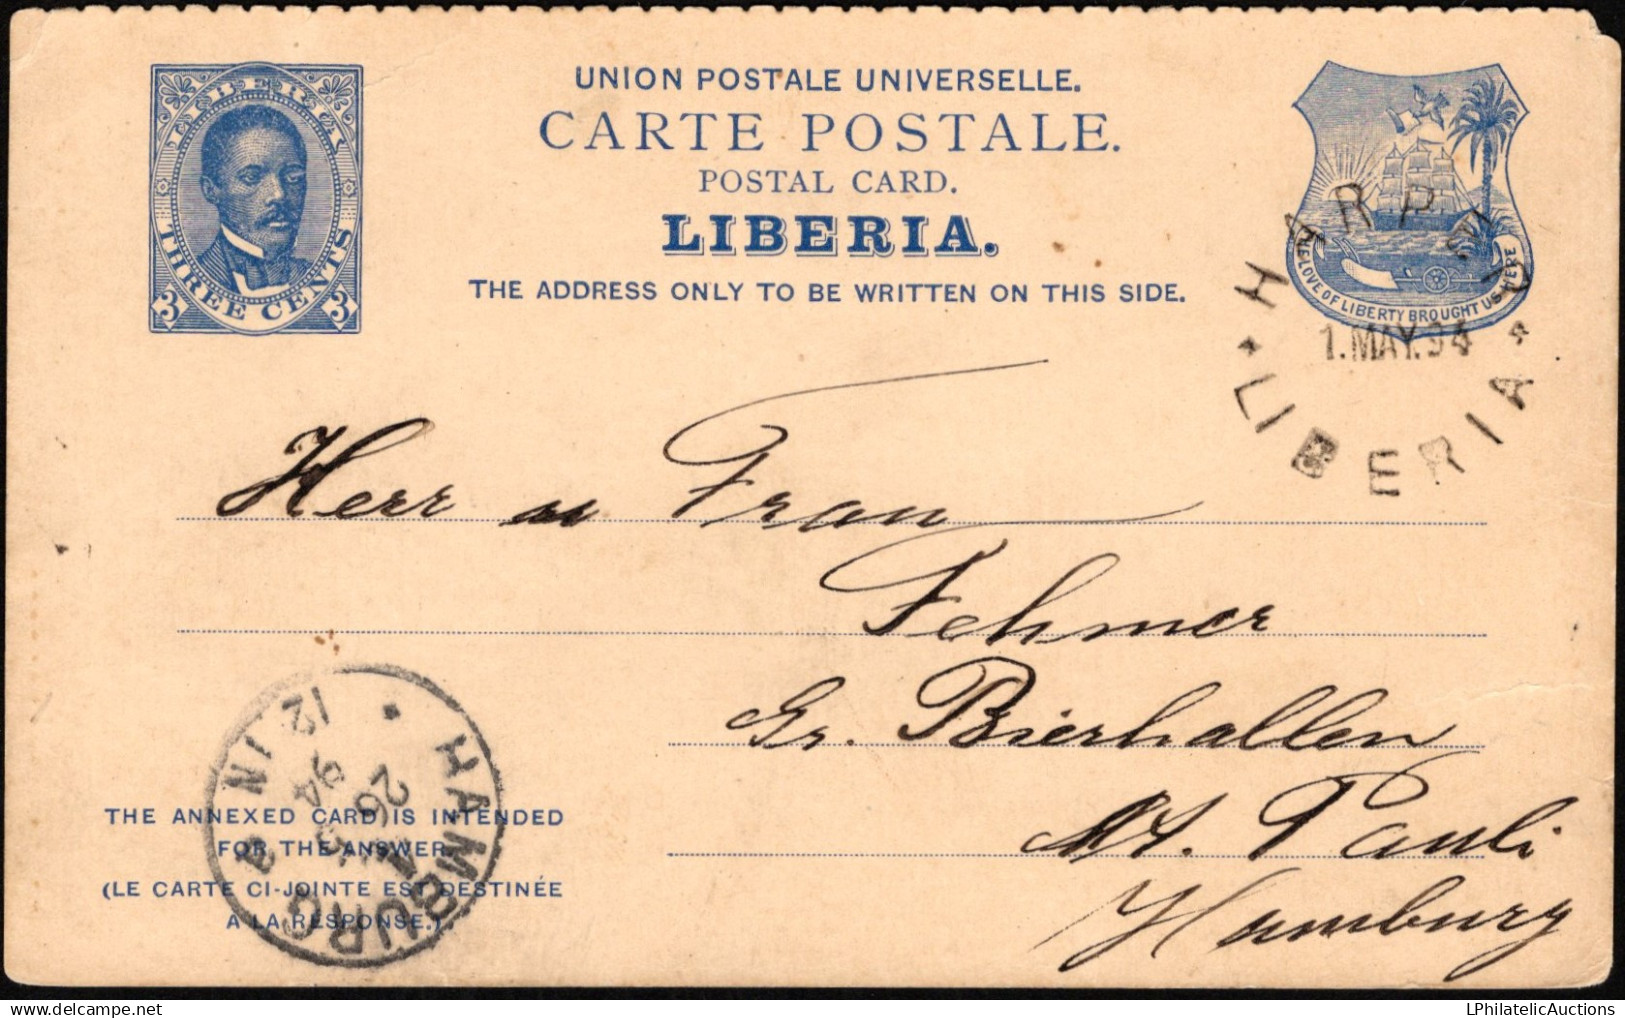 LIBERIA
3 THREE CENTS 3
UNION POSTALE UNIVERSELLE.
CARTE POSTALE.
POSTAL CARD.
LIBERIA.
THE ADDRESS ONLY TO BE WRITTEN ON THIS SIDE.
THE LOVE OF LIBERTY BROUGHT US HERE
HARP
1.MAY.94
LIBERIA
Herr u Frau
Fehmer
Gr. Bierhallen
St. Pauli
Hamburg
THE ANNEXED CARD IS INTENDED
FOR THE ANSWER.
(LE CARTE CI-JOINTE EST DESTINÉE
A LA RÉSPONSE.)
HAMBURG
26
94
12
delcampe.net
LPhilatelicAuctions